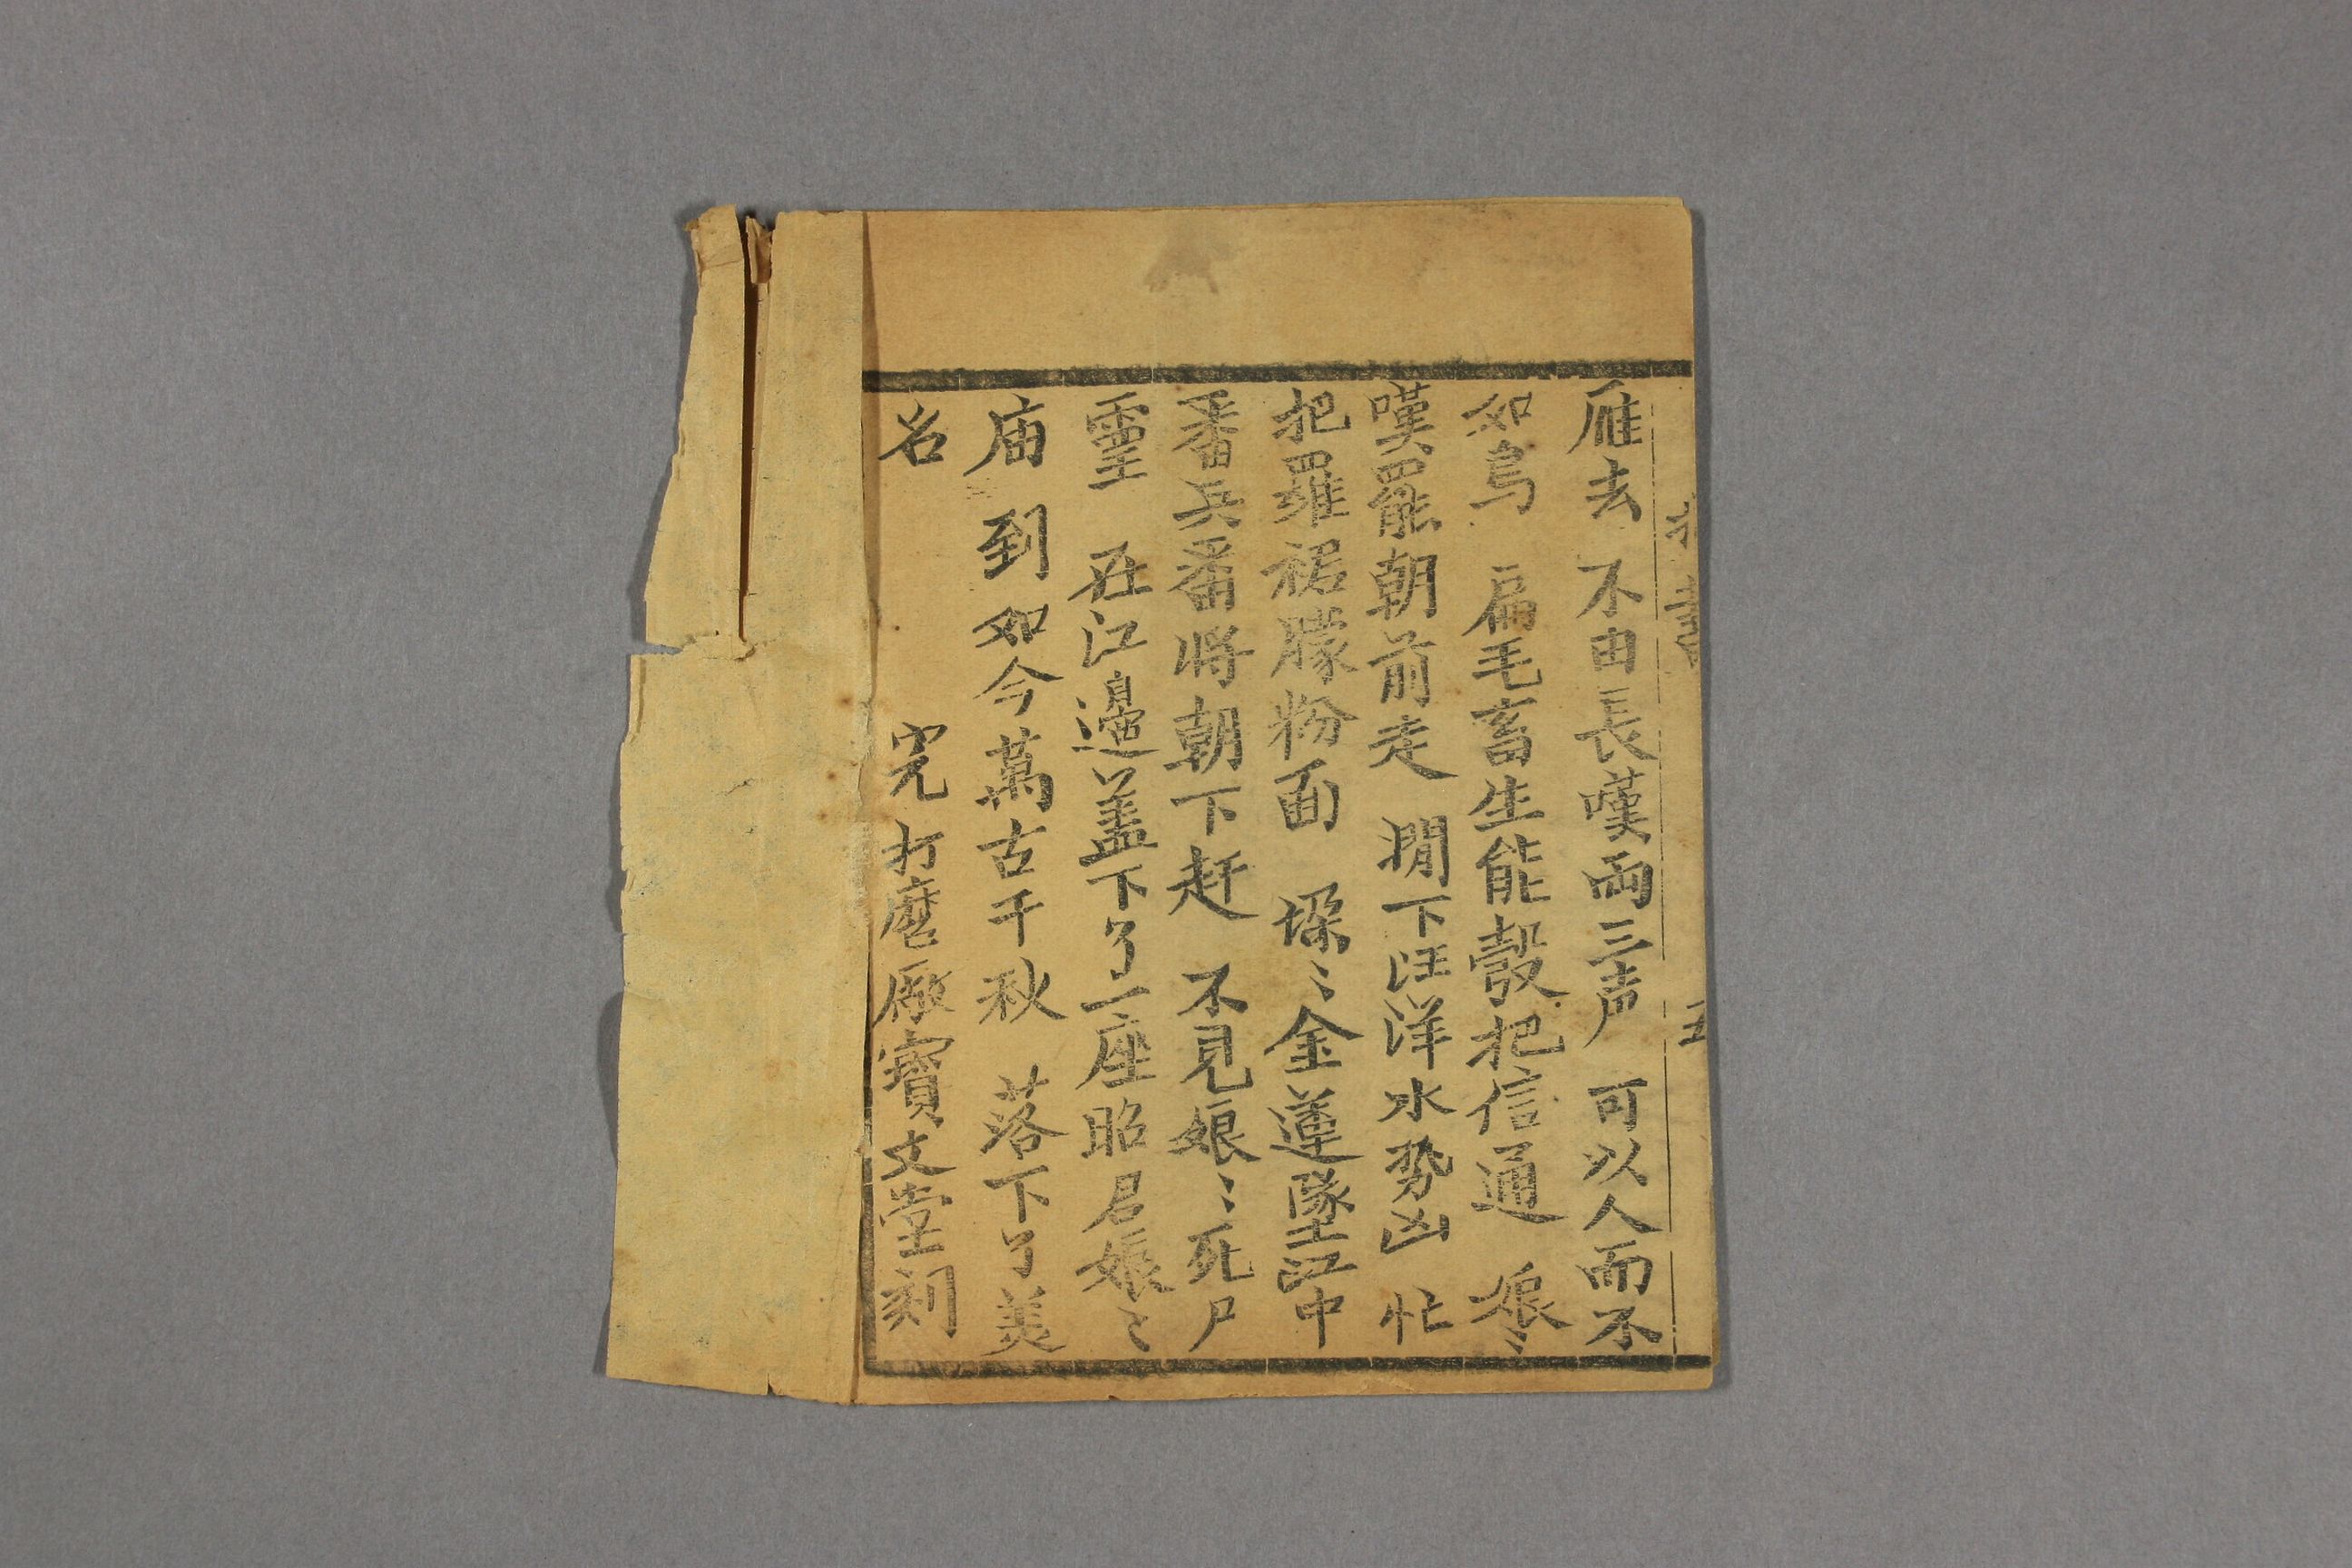 雁去　不由長嘆両三声　可以人而不
如鳥　扁毛畜生能彀把信通　娘〻
嘆罷朝前走　欄下汪洋水势凶　忙
把羅裙朦粉面　跺〻金蓮墜江中
番兵番將朝下赶　不見娘〻死尸
靈　在江邉盖下了一座昭君娘〻
庙　到如今萬古千秋　落下了美
名　　　完　打磨廠寳文堂刻
五